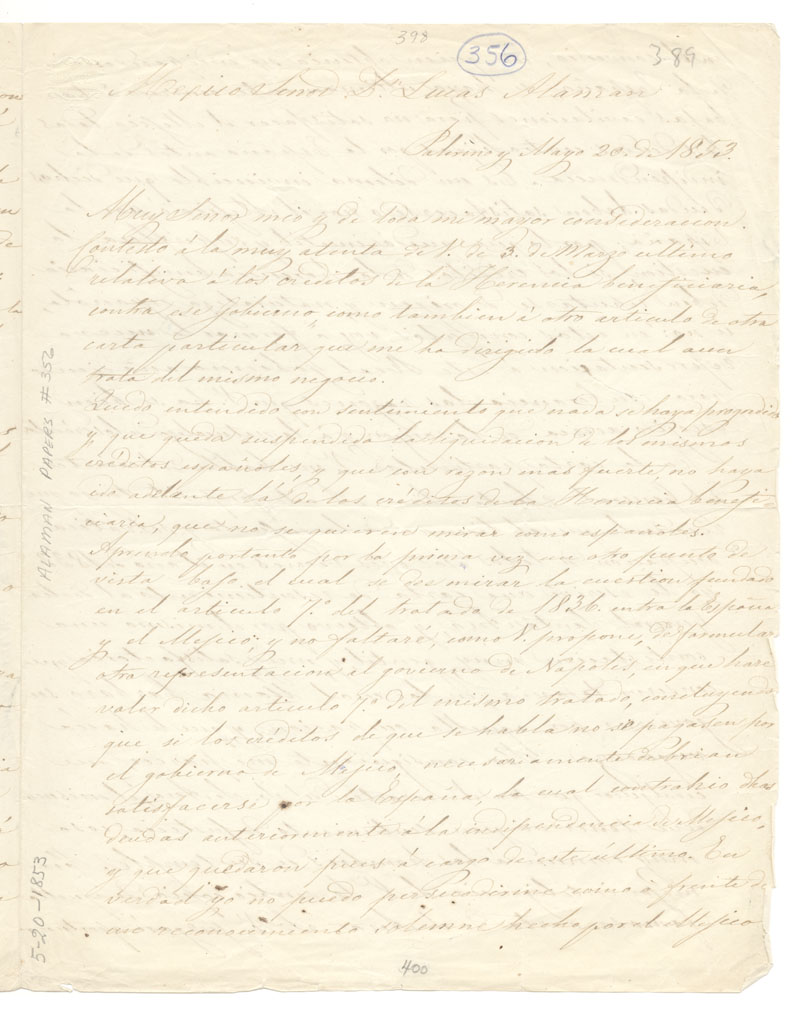 398
356
389
Mexico Señor Dn. Lucas Alaman
Palermo y Mayo 20. de 1853.
Muy Señor mio y de toda mi mayor consideracion.
Contesto á la muy atenta de V. de 3. de Marzo ultimo
relativa á los créditos de la Herencia beneficiaria,
contra ese gobierno, como tambien á otro articulo de otra
carta particular que me ha dirigido la cual
trata del mismo negocio.
Quedo entendido con sentimiento que nada se haya
y que queda suspendida la liquidacion de los mismos
créditos españoles, y que con razon mas fuerte, no haya
ido adelante la de los créditos de la Herencia benefi-
ciaria, que no se quieren mirar como españoles.
Aprendo portanto por la prima vez un otro punto de
vista bajo el cual se dee mirar la cuestion fundada
en el articulo 7º. del tratado de 1836. entra la España
y el Mejico; y no faltaré, como V. propone, de formular
otra representacion al govierno de Napoles, en que haré
valer dicho articulo 7º del mismo tratado, concluyendo
que si los créditos de que se habla no se pagasen por
el gobierno de Mejico, necesariamente debrian
satisfacerse por la España, la cual contrahio dhas
deudas anteriormente á la independencia de Mejico,
y que quedaron pues á cargo de este último. En
verdad yo no puedo como á frente de
un reconocimiento solemne hecho por el Mejico
400
ALAMAN PAPERS #356
5-20-1,853